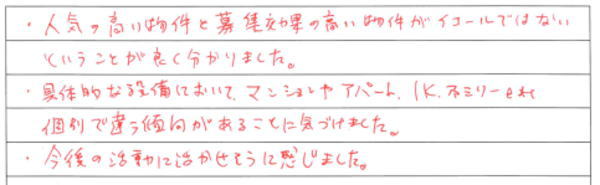 ・人気の高い物件と募集効果の高い物件がイコールではない
ということが良く分かりました。
・具体的な設備において、マンションやアパート、1K、ファミリーetc
個別で違う傾向があることに気づけました。
・今後の活動に活かせそうに感じました。